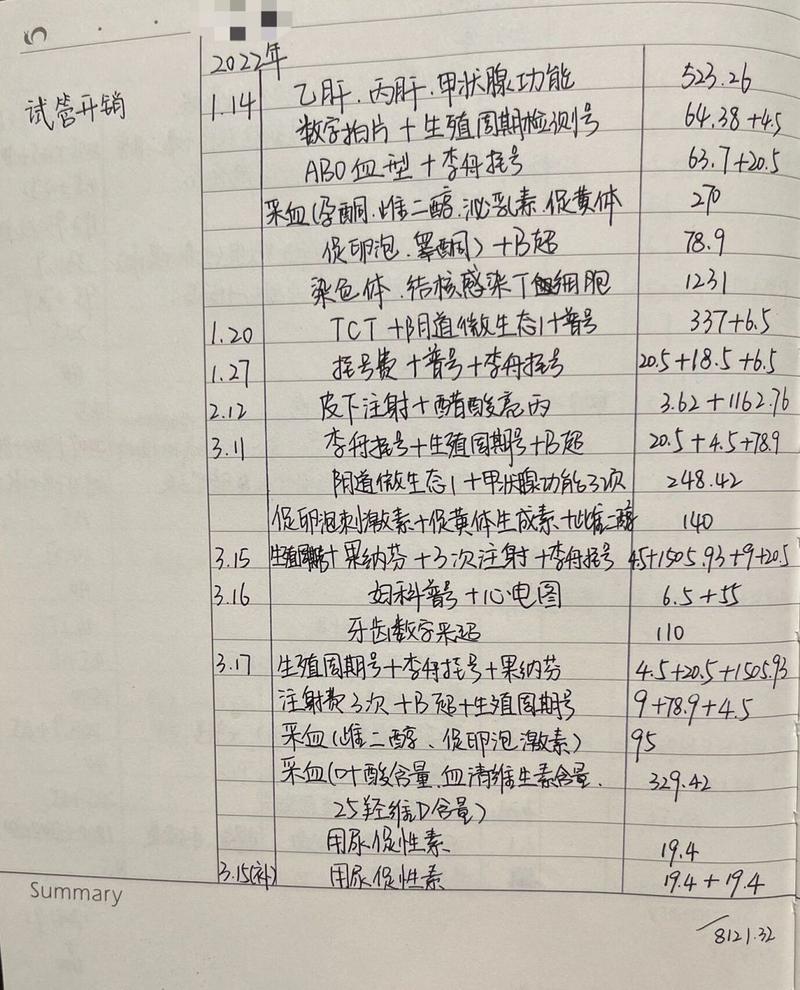 2022年
试管开销
1.14 乙肝.丙肝.甲状腺功能 523.26
数字拍片+生殖周期检测号 64.38+4.5
ABO血型+李舟挂号 63.7+20.5
采血(孕酮.雌二醇.泌乳素.促黄体 270
促卵泡.睾酮)+B超 78.9
染色体.结核感染T细胞 1231
1.20 TCT+阴道微生态1+普号 337+6.5
1.27 挂号费+普号+李舟挂号 20.5+18.5+6.5
2.12 皮下注射+醋酸亮丙 3.62+1162.76
3.11 李舟挂号+生殖周期号+B超 20.5+4.5+78.9
阴道微生态1+甲状腺功能3次 248.42
促卵泡刺激素+促黄体生成素+雌二醇 140
3.15 生殖周期+果纳芬+3次注射+李舟挂号 4.5+1505.93+9+20.5
3.16 妇科普号+心电图 6.5+55
牙齿数字采超 110
3.17 生殖周期号+李舟挂号+果纳芬 4.5+20.5+1505.93
注射费3次+B超+生殖周期号 9+78.9+4.5
采血(雌二醇、促卵泡激素) 95
采血(叶酸含量.血清维生素含量. 329.42
25羟维D含量)
用尿促性素 19.4
3.15(补) 用尿促性素 19.4+19.4
Summary
8121.32